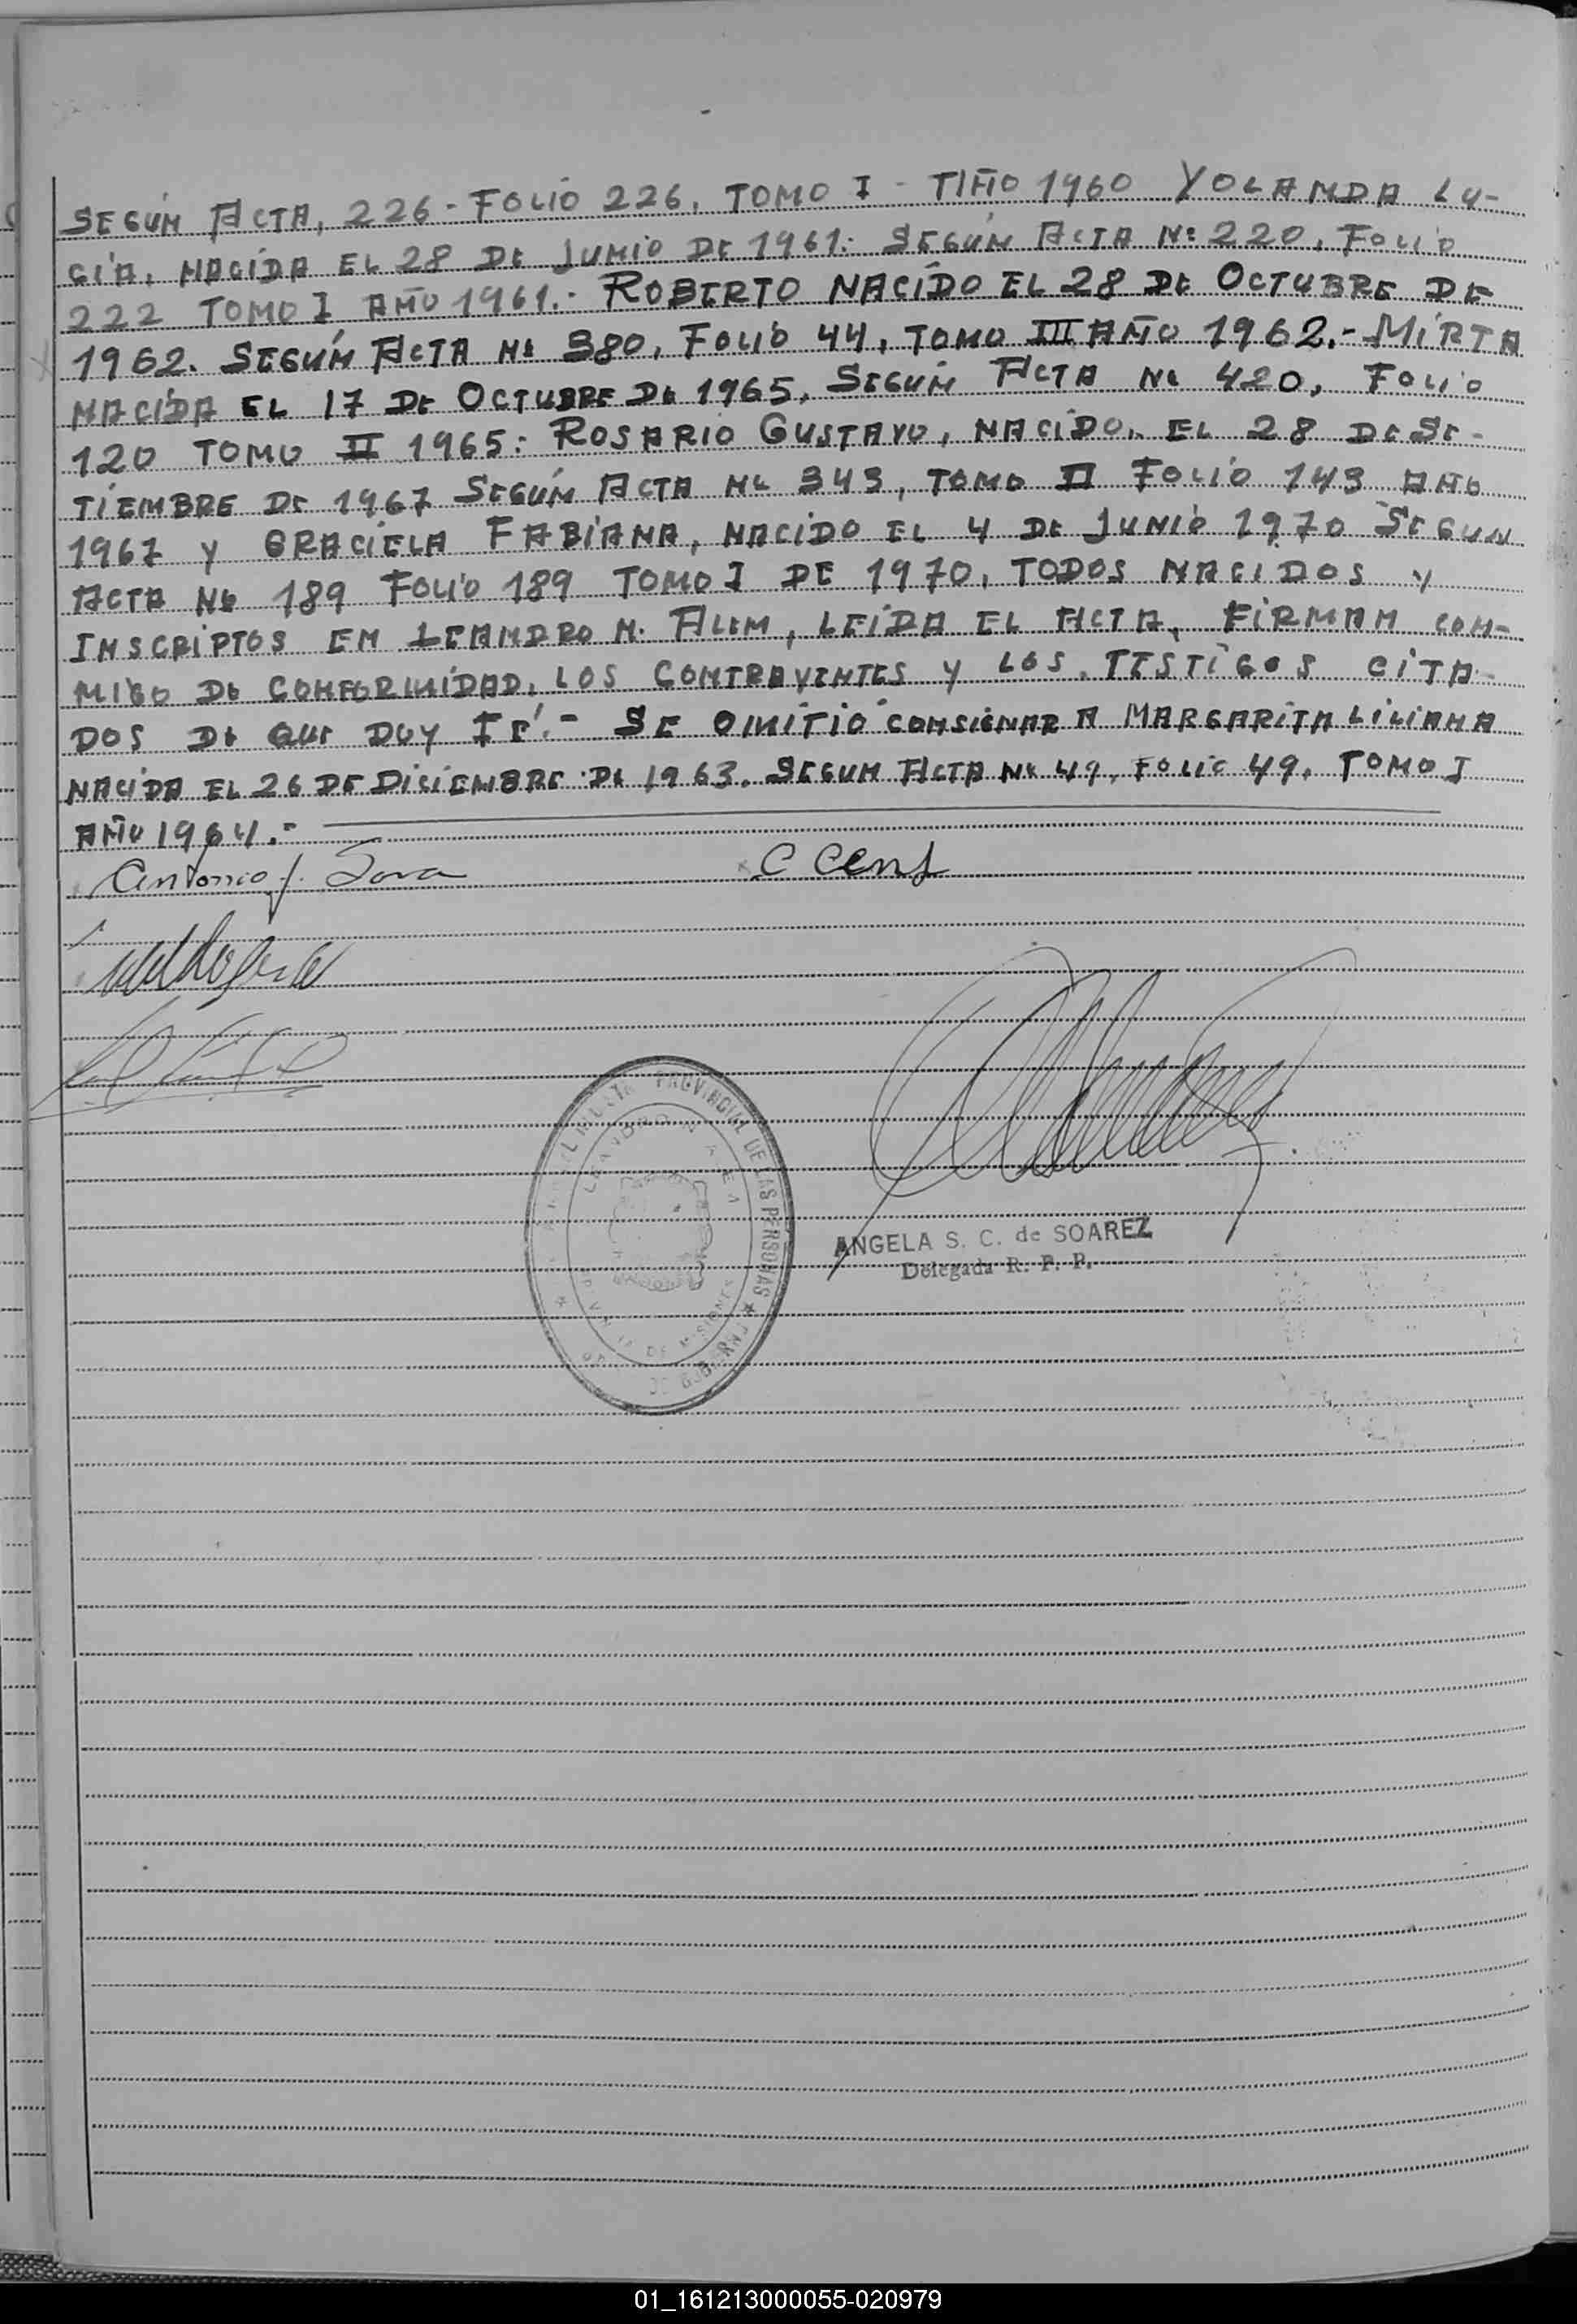 SEGÚN ACTA, 226 - FOLIO 226, TOMO I - AÑO 1960 YOLANDA LU-
CÍA, NACIDA EL 28 DE JUNIO DE 1961.- SEGÚN ACTA Nº 220, FOLIO
222 TOMO I AÑO 1961.- ROBERTO NACIDO EL 28 DE OCTUBRE DE
1962. SEGÚN ACTA Nº 380, FOLIO 44, TOMO III AÑO 1962.- MIRTA
NACIDA EL 17 DE OCTUBRE DE 1965, SEGUN ACTA Nº 420, FOLIO
120 TOMO II 1965: ROSARIO GUSTAVO, NACIDO, EL 28 DE SE-
TIEMBRE DE 1967 SEGÚN ACTA Nº 343, TOMO II FOLIO 143 AÑO
1967 Y GRACIELA FABIANA, NACIDO EL 4 DE JUNIO 1970 SEGUN
ACTA Nº 189 FOLIO 189 TOMO I DE 1970, TODOS NACIDOS Y
INSCRIPTOS EN LEANDRO N. ALEM, LEIDA EL ACTA, FIRMAN CON-
MIGO DE CONFORMIDAD, LOS CONTRAYENTES Y LOS, TESTIGOS CITA-
DOS DE QUE DOY FE.- SE OMITIO CONSIGNAR A MARGARITA LILIANA
NACIDA EL 26 DE DICIEMBRE DE 1963. SEGUN ACTA Nº 49, FOLIO 49, TOMO I
AÑO 1964.-
Antonio J.
PROVINCIAL DE LAS PERSONAS
LEANDRO N. ALEM
ANGELA S. C. de SOAREZ
Delegada R. P. P.
01_161213000055-020979